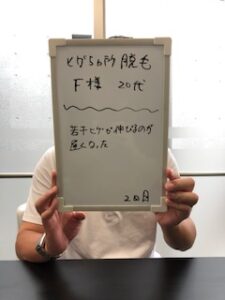 ヒゲ5ヵ所脱毛
F様 20代
若干ヒゲが伸びるのが
遅くなった
2回目